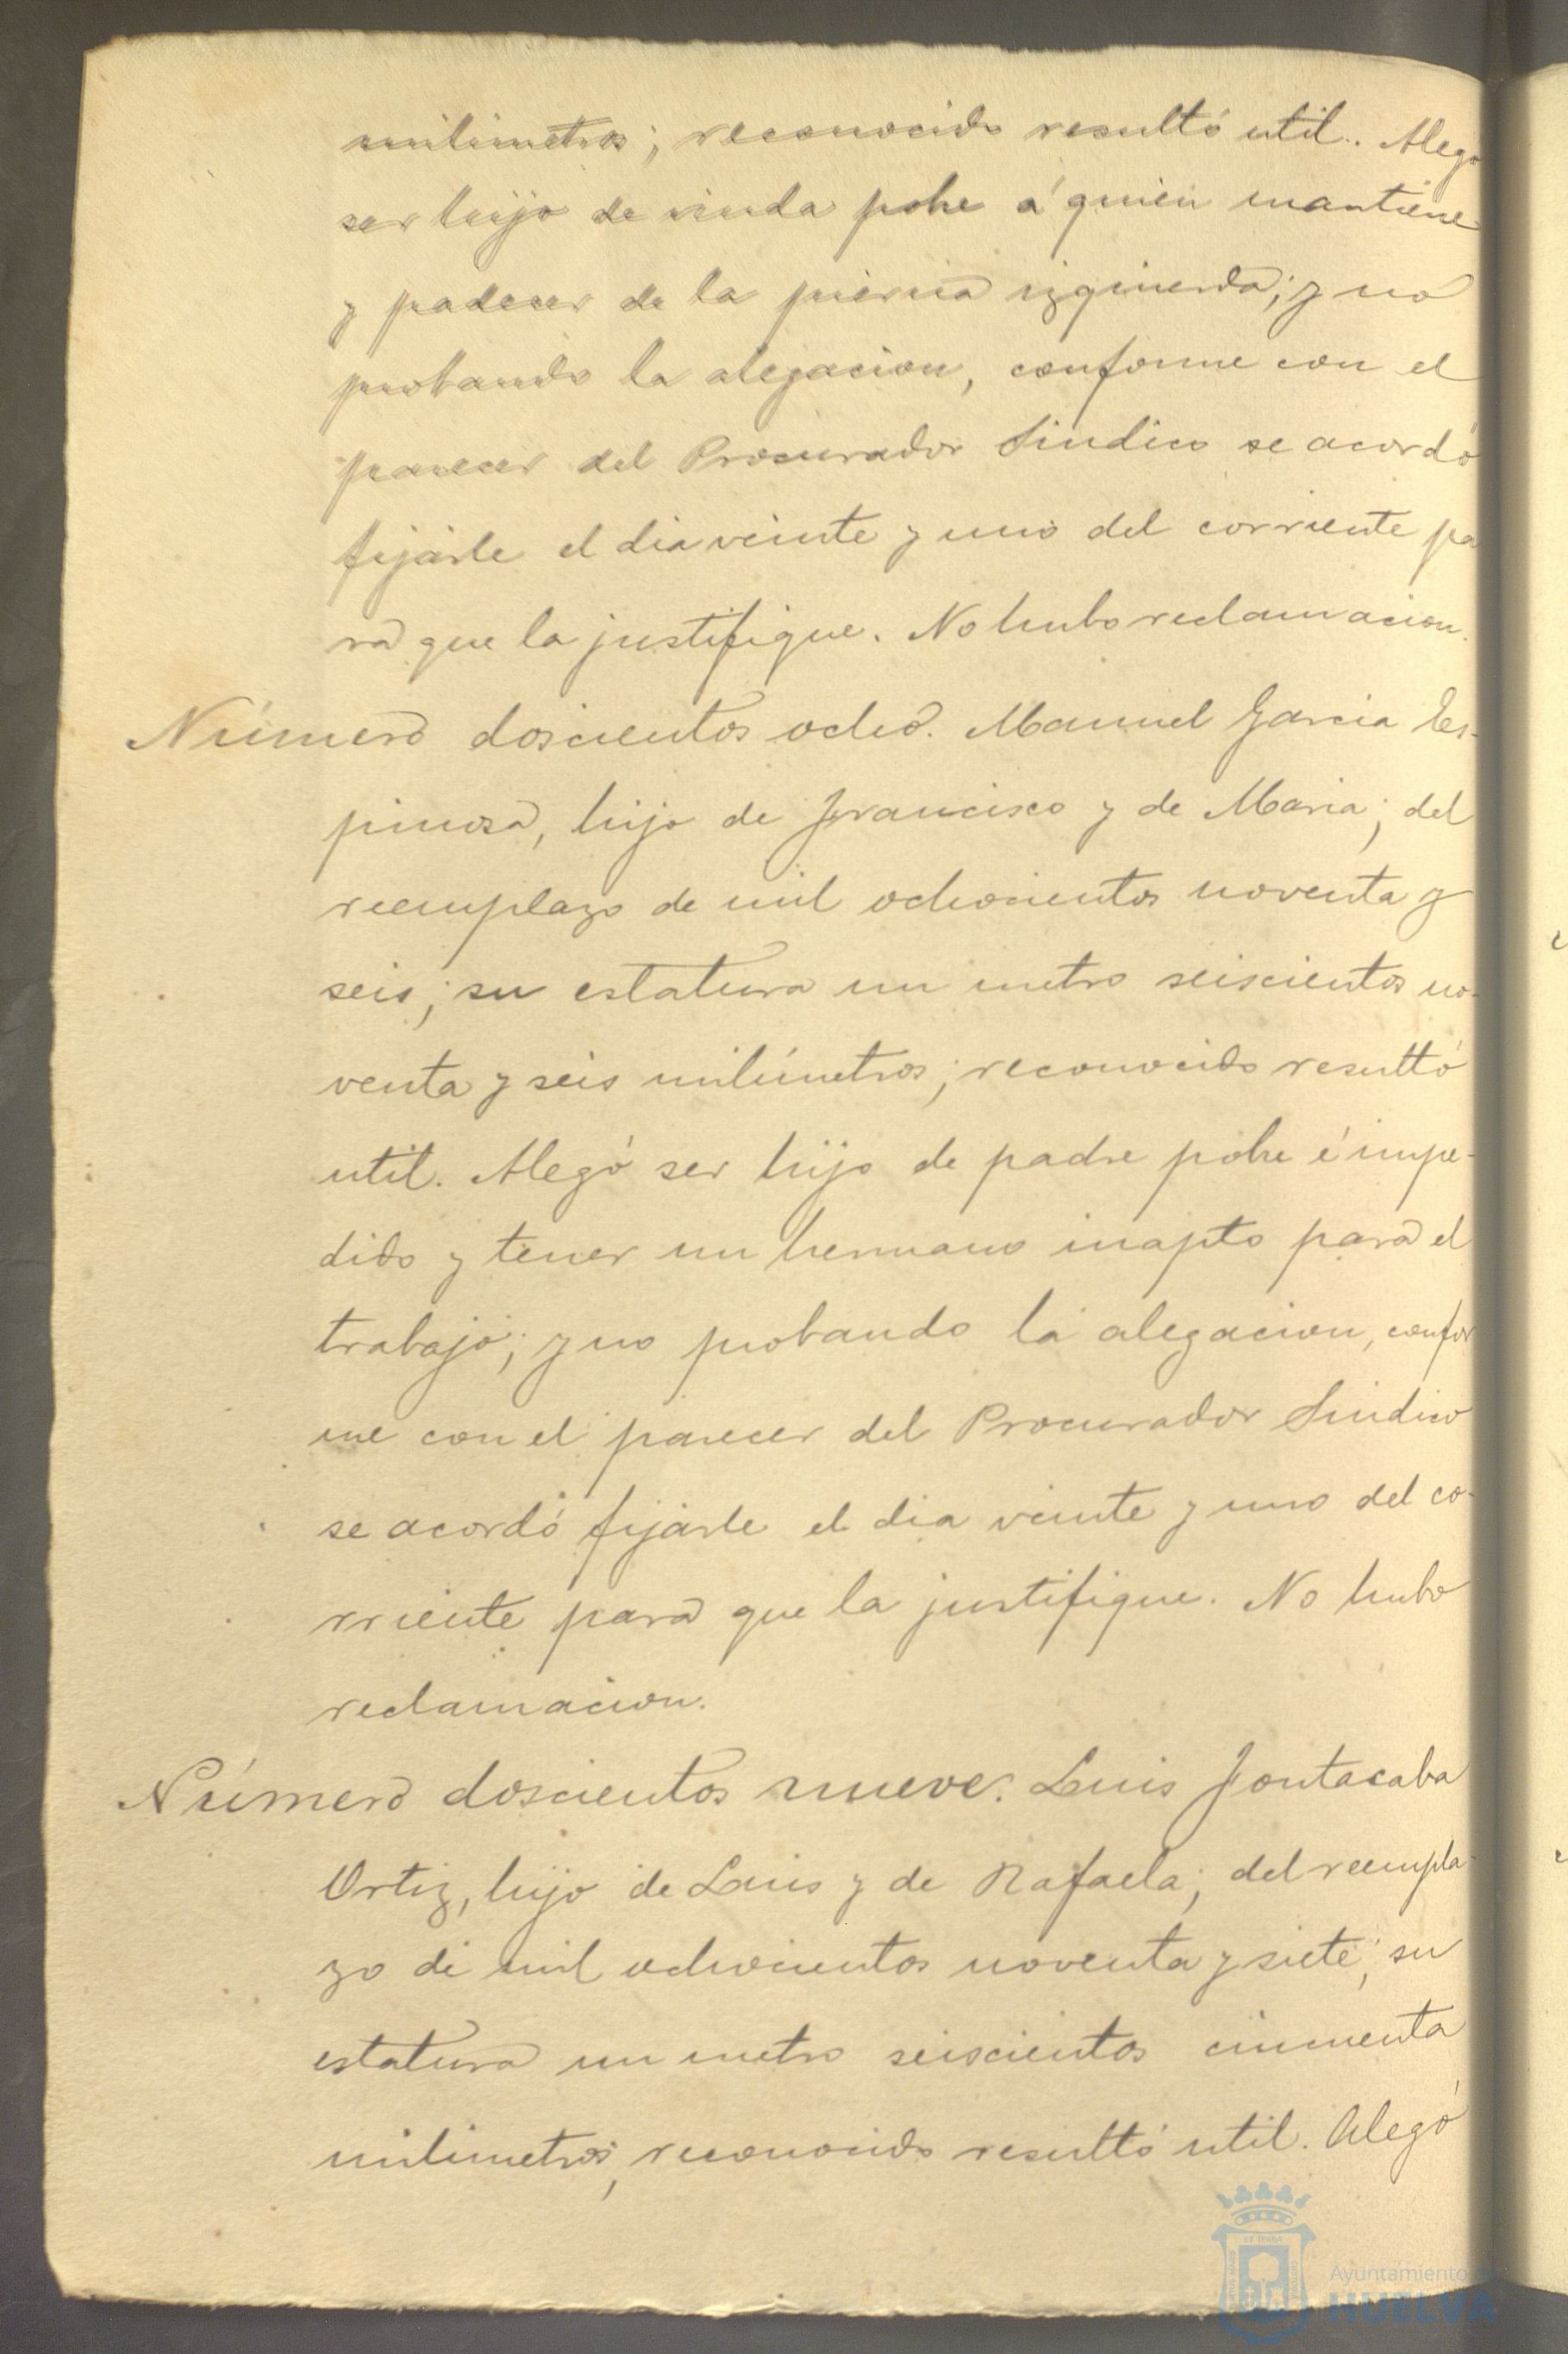 milimetros; reconocido resultó util. Alegó
ser hijo de viuda pobre á quien mantiene
y padecer de la pierna izquierda; y no
probando la alegacion, conforme con el
parecer del Procurador Sindico se acordó
fijarle el dia veinte y uno del corriente pa
ra que la justifique. No hubo reclamacion.
Número doscientos ocho. Manuel Garcia Es-
pinosa, hijo de Francisco y de Maria; del
reemplazo de mil ochocientos noventa y
seis; su estatura un metro seiscientos no-
venta y seis milímetros; reconocido resultó
util. Alegó ser hijo de padre pobre é impe-
dido y tener un hermano inapto para el
trabajo; y no probando la alegacion, confor
me con el parecer del Procurador Sindico
se acordó fijarle el dia veinte y uno del co-
rriente para que la justifique. No hubo
reclamacion.
Número doscientos nueve. Luis Fontacaba
Ortiz, hijo de Luis y de Rafaela; del reempla-
zo de mil ochocientos noventa y siete; su
estatura un metro seiscientos cincuenta
milimetros; reconocido resultó util. Alegó
Ayuntamiento
HUELVA